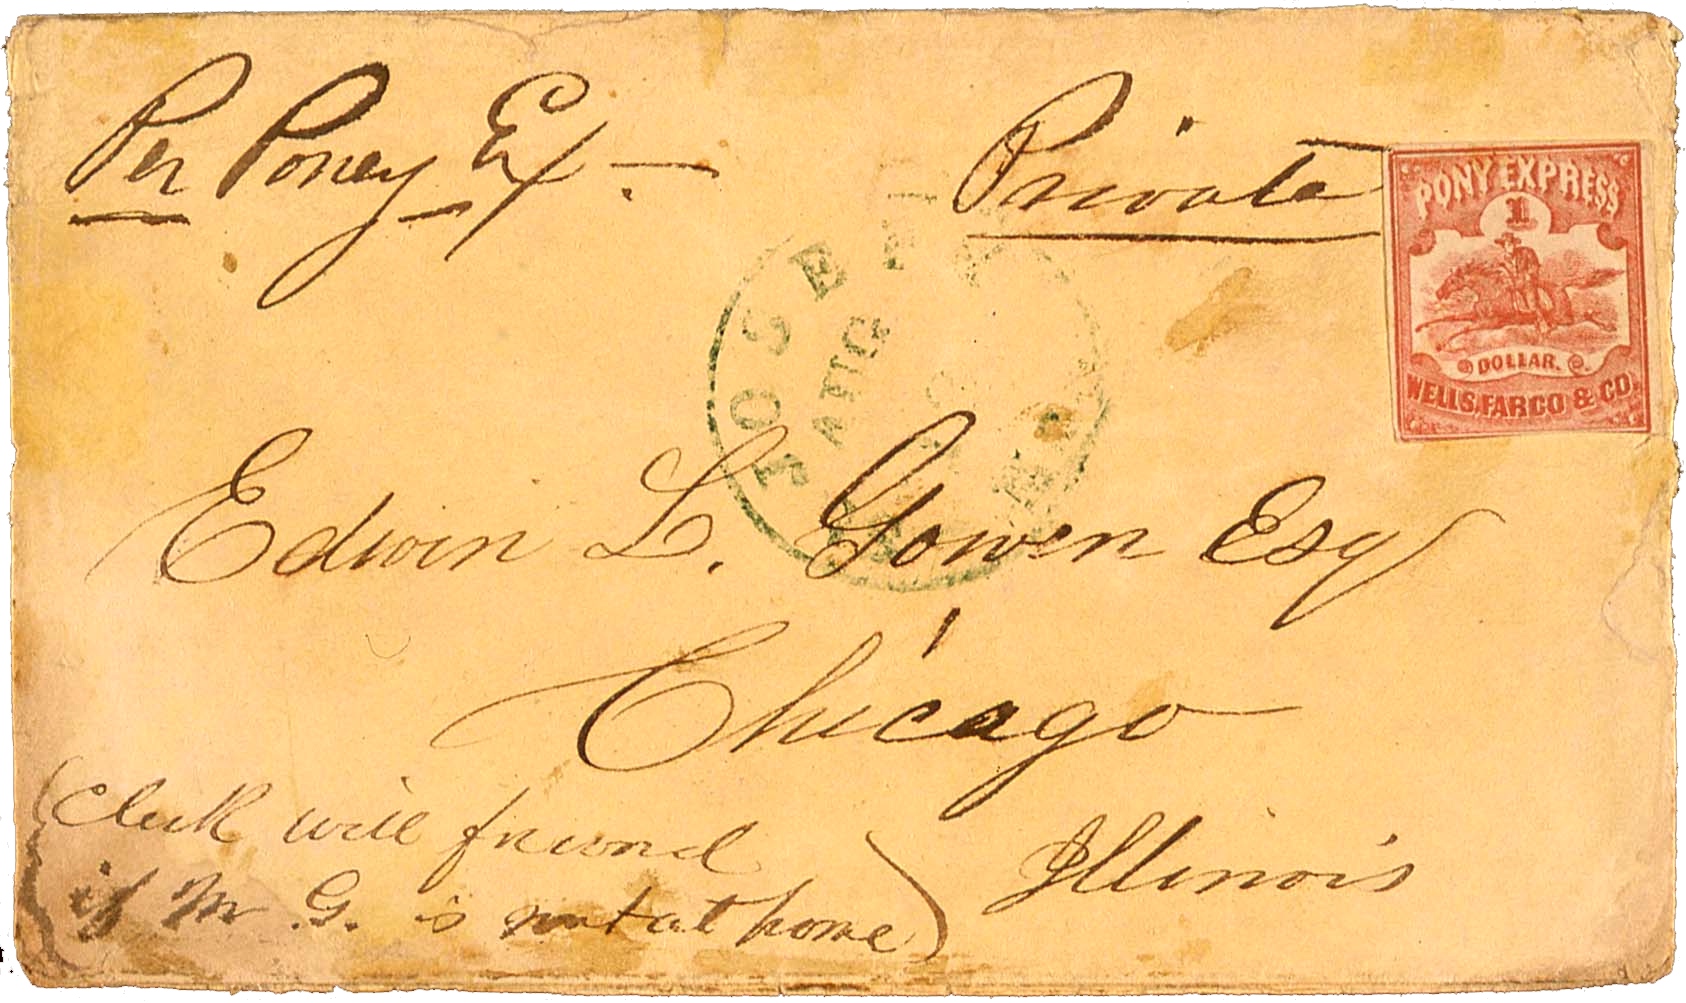 Per Poney Ex. —
Private
PONY EXPRESS
1
DOLLAR.
WELLS, FARGO & CO.
JOSEPH
AUG
Edwin L. Gowen Esq
Chicago
Illinois
(Clerk will
if Mr. G. is not at home)